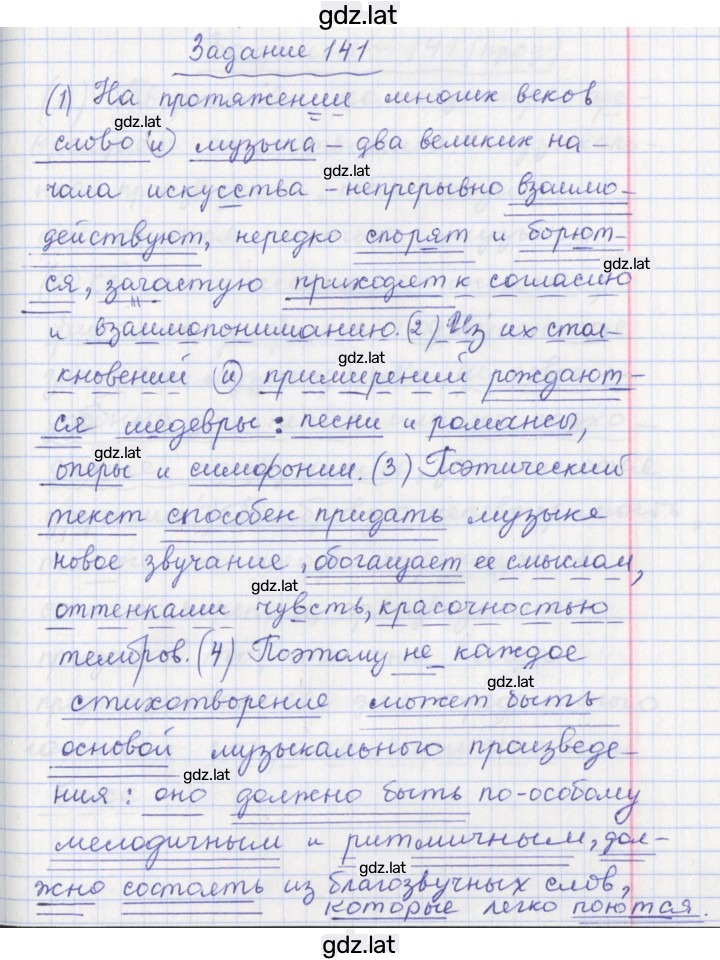 gdz.lat
Задание 141
(1) На протяжении многих веков
gdz.lat
слово и музыка – два великих на-
gdz.lat
чала искусства – непрерывно взаимо-
действуют, нередко спорят и борют-
gdz.lat
ся, зачастую приходят к согласию
и взаимопониманию. (2) Из их стол-
gdz.lat
кновений и примирений рождают-
ся шедевры: песни и романсы,
оперы и симфонии. (3) Поэтический
текст способен придать музыке
новое звучание, обогащает ее смыслом,
gdz.lat
оттенками чувств, красочностью
тембров. (4) Поэтому не каждое
gdz.lat
стихотворение может быть
основой музыкального произведе-
gdz.lat
ния: оно должно быть по-особому
мелодичным и ритмичным, дол-
gdz.lat
жно состоять из благозвучных слов,
которые легко поются.
gdz.lat